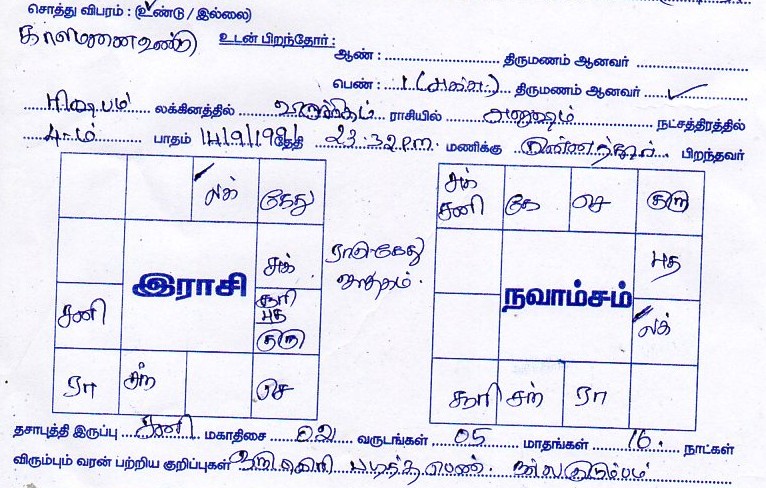 சொத்து விபரம் : (உண்டு / இல்லை)
உடன் பிறந்தோர் : ஆண் : திருமணம் ஆனவர்
பெண் : 1 (அக்கா) திருமணம் ஆனவர் ✓
ரிஷபம் லக்கினத்தில் விருச்சிகம் ராசியில் அனுஷம் நட்சத்திரத்தில்
4-ம் பாதம் 14/9/1991 தேதி 23.32 P.m. மணிக்கு பிறந்தவர்
லக் கேது
சுக்
சனி சூரி புத குரு
ரா சந் செ
இராசி
ராகு-கேது
ஜாதகம்.
சுக் சனி கே செ குரு
புத
லக்
சூரி சந் ரா
நவாம்சம்
தசாபுத்தி இருப்பு சனி மகாதிசை 02 வருடங்கள் 05 மாதங்கள் 16. நாட்கள்
விரும்பும் வரன் பற்றிய குறிப்புகள் டிகிரி படித்த பெண். நல்ல குடும்பம்